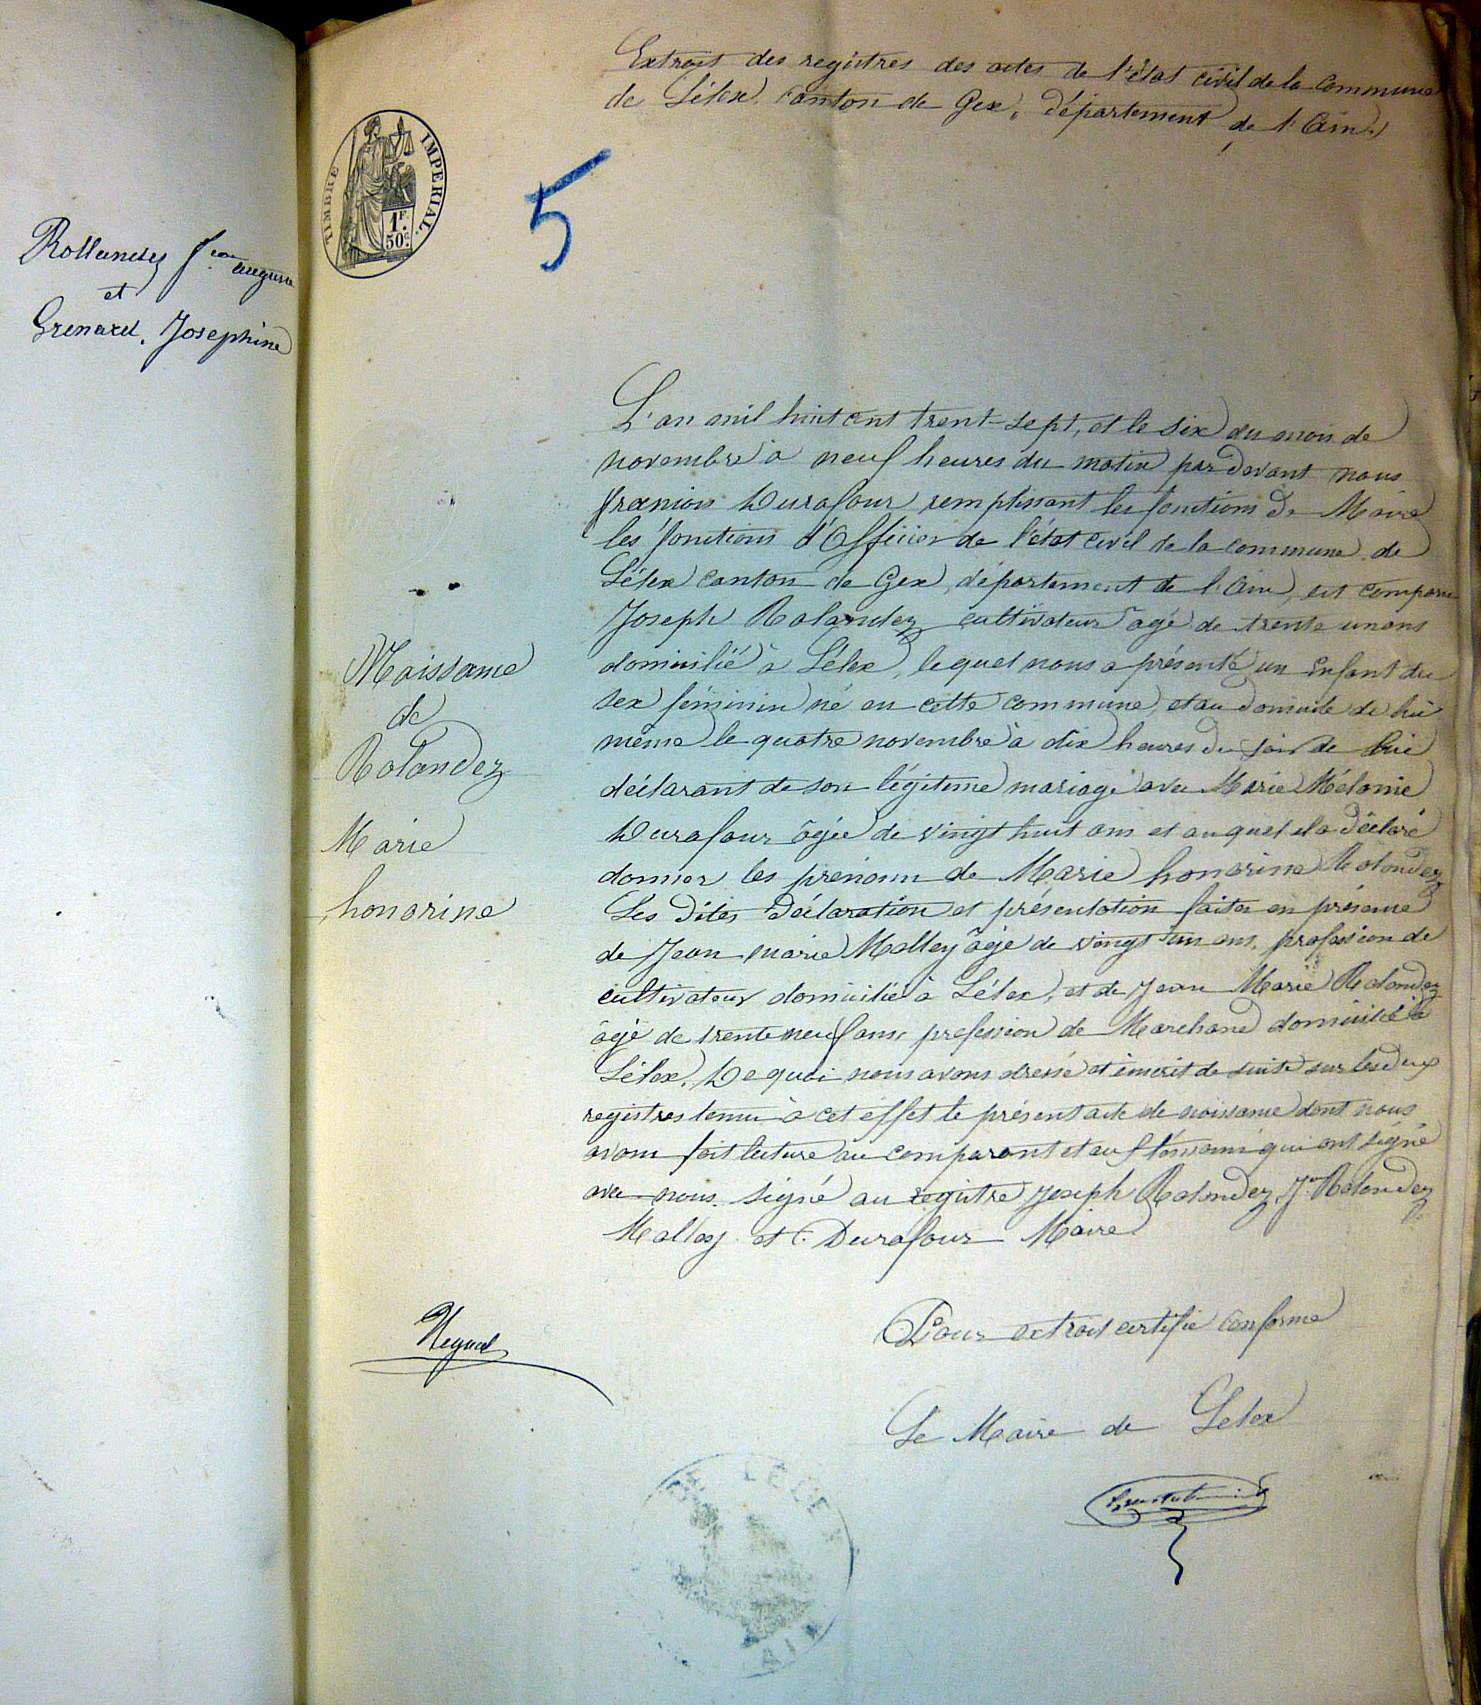 Extrait des registres des actes de l'état civil de la Commune
de Lélex, canton de Gex, département de l'Ain.
TIMBRE IMPERIAL.
1F.
50c.
5
Rollandez Jean
et
Grenard. Josephine
L'an mil huit cent trent-sept, et le six du mois de
novembre à neuf heures du matin par devant nous
françois Durafour remplissant les fonctions de Maire
les fonctions d'Officier de l'état civil de la commune de
Lélex canton de Gex, département de l'Ain, est comparu
Joseph Rolandez cultivateur âgé de trente un ans
domicilié à Lélex, lequel nous a présenté un Enfant du
sex féminin né en cette commune, et au domicile de lui
même le quatre novembre à dix heures du soir de lui
déclarant de son légitime mariage avec Marie Mélanie
Durafour âgée de vingt huit ans et auquel il a déclaré
donner les prénoms de Marie honorine Rolandez
Les dites déclaration et présentation faites en présence
de Jean marie Malley âgé de vingt un ans, profession de
cultivateur domicilié à Lélex, et de Jean Marie Rolandez
âgé de trente neuf ans, profession de Marchand domicilié à
Lélex, De quoi nous avons dressé et inscrit de suite sur les deux
registres tenu à cet effet le présent acte de naissance dont nous
avons fait lecture au comparant et aux témoins qui ont signé
avec nous. signé au registre Joseph Rolandez, J. Rolandez
Malley et Durafour Maire
Naissance
de
Rolandez
Marie
honorine
Pour extrait certifié conforme
Le Maire de Lelex
LELEX
AIN